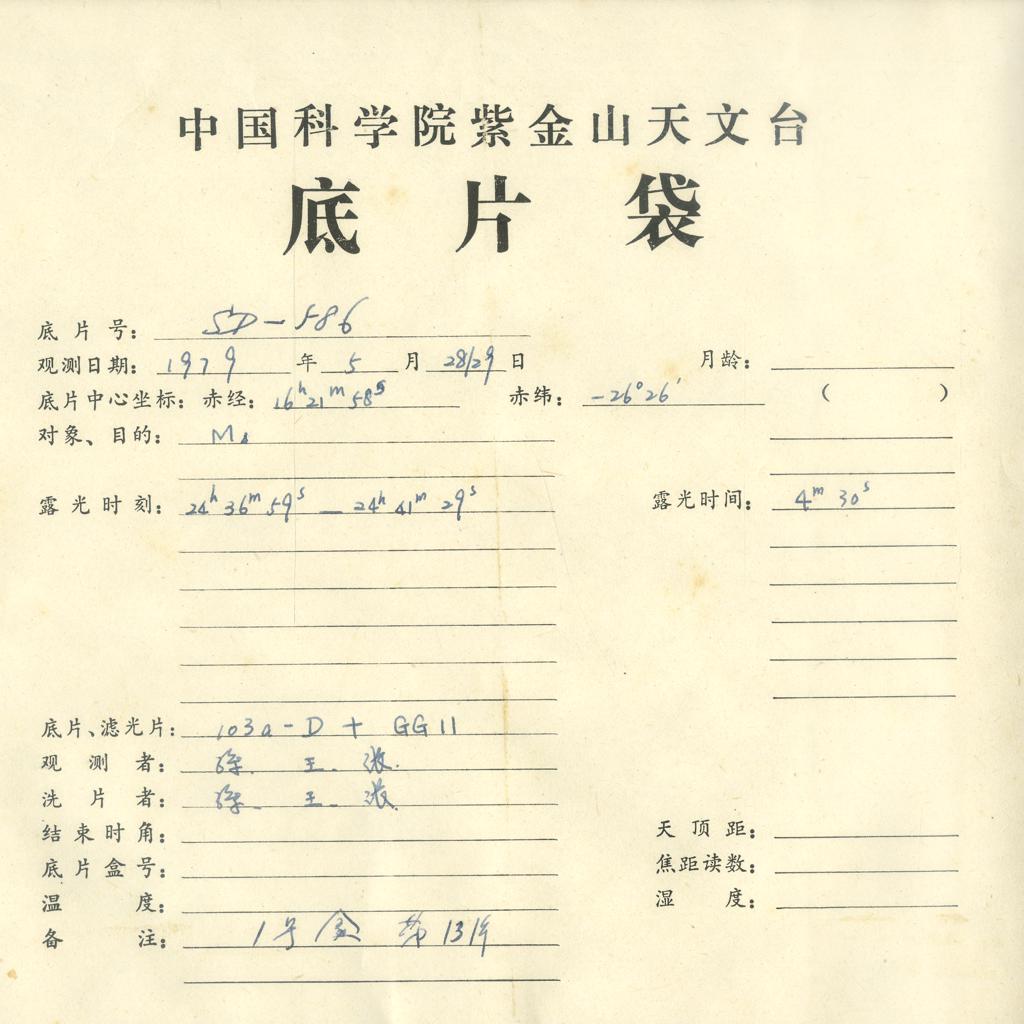 中国科学院紫金山天文台
底片袋
底片号: SD-586
观测日期: 1979年5月28/29日 月龄:
底片中心坐标: 赤经: 16h21m58s 赤纬: -26°26′ ( )
对象、目的: M4
露光时刻: 24h36m59s — 24h41m29s 露光时间: 4m30s
底片、滤光片: 103a-D + GG11
观测者: 王. 张.
洗片者: 王. 张
结束时角: 天顶距:
底片盒号: 焦距读数:
温度: 湿度:
备注: 1号盒 第13片